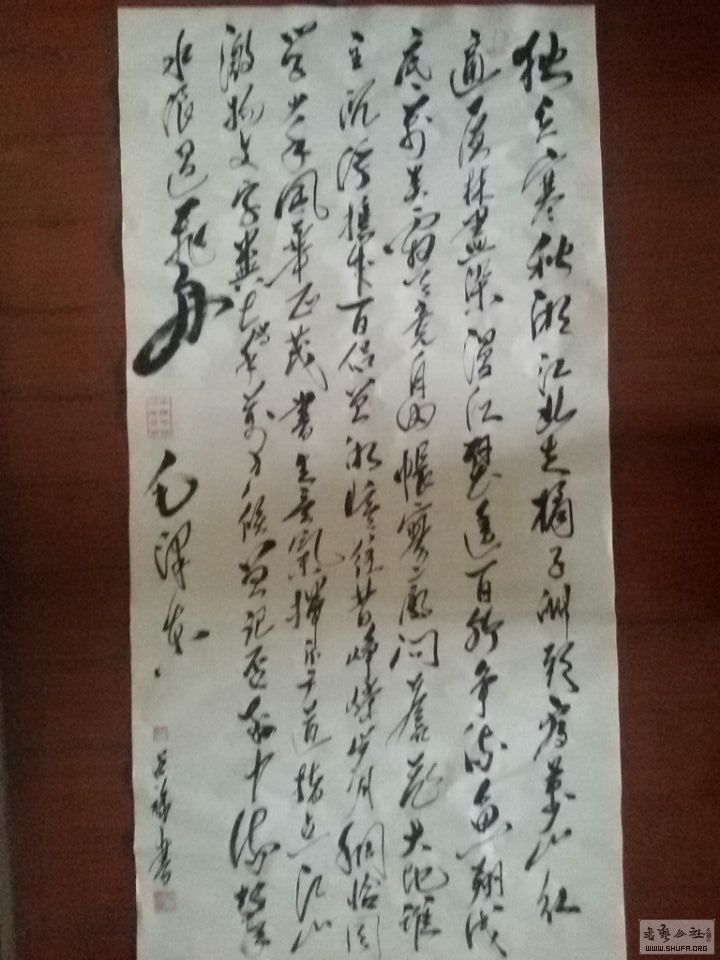 独立寒秋湘江北去橘子洲头看萬山红
遍层林盡染漫江碧透百舸争流鱼翔浅
底萬类霜天竞自由怅寥廓问苍茫大地谁
主沉浮携来百侣曾游忆往昔峥嵘岁月稠恰同
学少年风华正茂書生意气挥斥方遒指点江山
激扬文字粪土当年万户侯曾记否到中流击
水浪遏飞舟
毛泽东
書
WWW.SHUFA.ORG